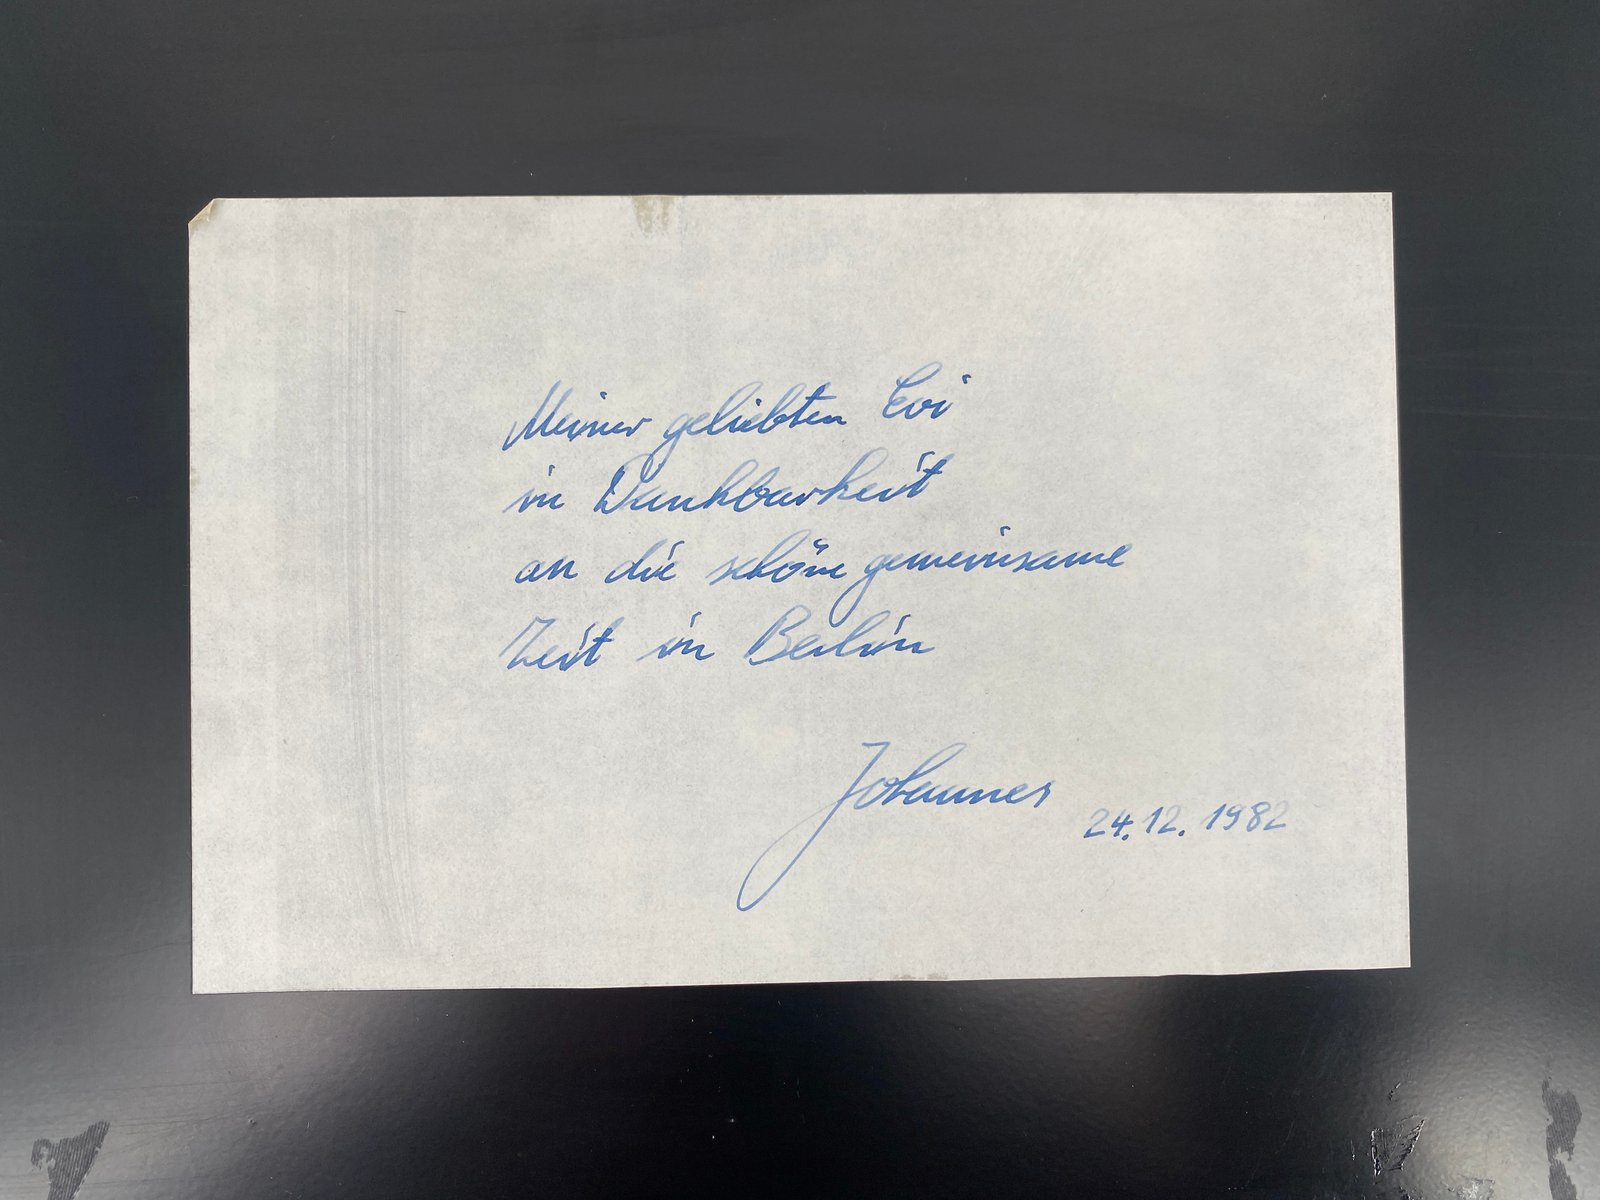 Meiner geliebten Evi
in Dankbarkeit
an die schöne gemeinsame
Zeit in Berlin
Johannes
24.12.1982